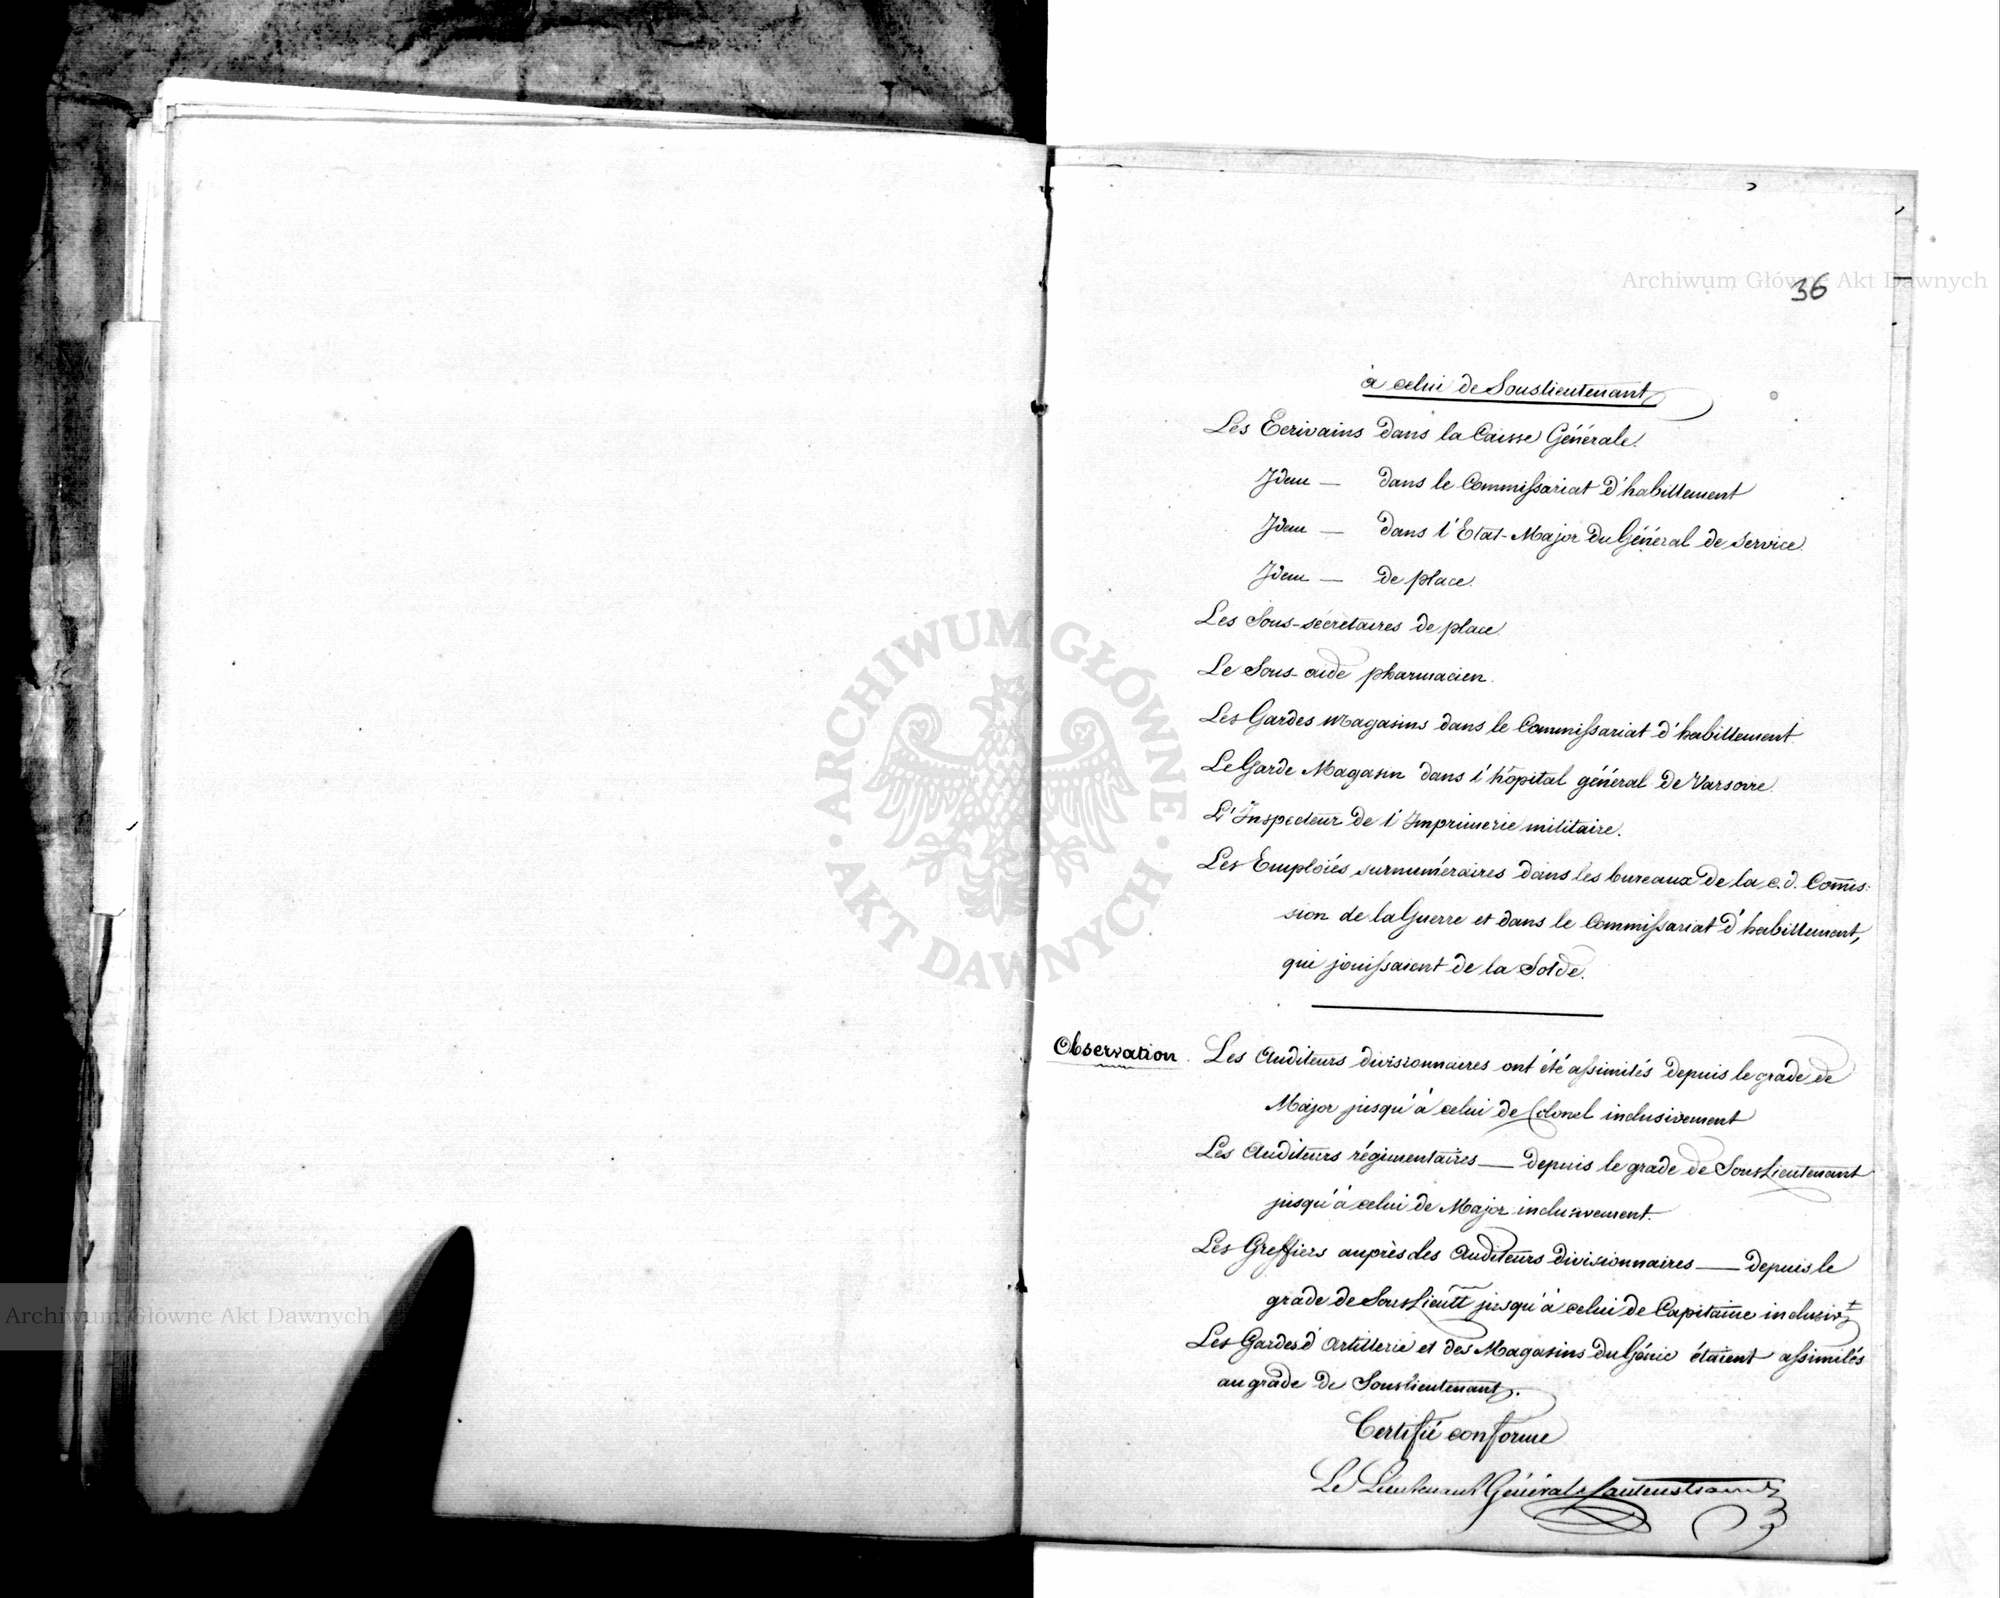 36
à celui de Souslieutenant
Les Ecrivains dans la Caisse Générale.
Idem — dans le Commissariat d'habillement
Idem — dans l'Etat-Major du Général de service.
Idem — de place.
Les Sous-sécrétaires de place.
Le Sous-aide pharmacien.
Les Gardes magasins dans le Commissariat d'habillement.
Le Garde Magasin dans l'hôpital général de Varsovie.
L'Inspecteur de l'Imprimerie militaire.
Les Emploiés surnuméraires dans les bureaux de la c.d. Comis-
sion de la Guerre et dans le Commissariat d'habillement,
qui jouissaient de la Solde.
Observation. Les Auditeurs divisionnaires ont été assimilés depuis le grade de
Major jusqu'à celui de Colonel inclusivement
Les Auditeurs régimentaires — depuis le grade de SousLieutenant
jusqu'à celui de Major inclusivement.
Les Greffiers auprès des Auditeurs divisionnaires — depuis le
grade de SousLieutt jusqu'à celui de Capitaine inclusivt
Les Gardes d'Artillerie et des Magasins du Génie étaient assimilés
au grade de Souslieutenant.
Certifié conforme
Le Lieutenant Général Hautenstrauch
ARCHIWUM GŁÓWNE AKT DAWNYCH
Archiwum Główne Akt Dawnych
Archiwum Główne Akt Dawnych